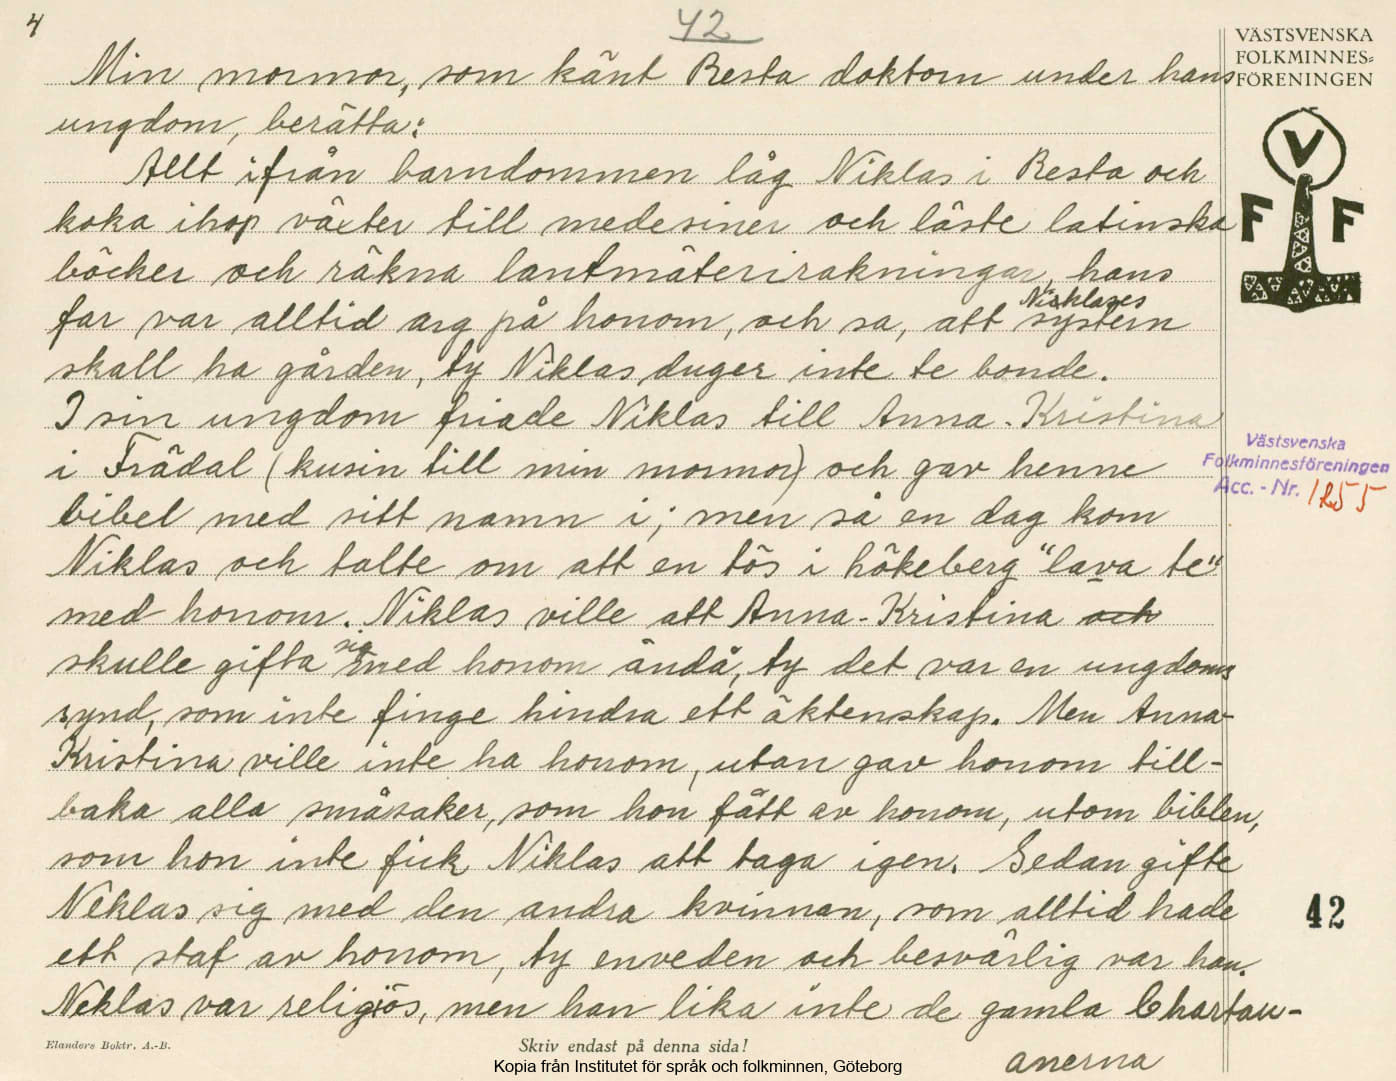 4
42
VÄSTSVENSKA
FOLKMINNES-
FÖRENINGEN
V
F F
Min mormor, som känt Resta doktorn under hans
ungdom, berätta:
Allt ifrån barndommen låg Niklas i Resta och
koka ihop växter till medesiner och läste latinska
böcker och räkna lantmäterirakningar, hans
far var alltid arg på honom, och sa, att Nicklases systern
skall ha gården, ty Niklas duger inte te bonde.
I sin ungdom friade Niklas till Anna-Kristina
i Frädal (kusin till min mormor) och gav henne
bibel med sitt namn i; men så en dag kom
Niklas och talte om att en tös i hökeberg "lava te"
med honom. Niklas ville att Anna-Kristina och
skulle gifta sig med honom ändå, ty det var en ungdoms
synd, som inte finge hindra ett äktenskap. Men Anna-
Kristina ville inte ha honom, utan gav honom till-
baka alla småsaker, som hon fått av honom, utom biblen,
som hon inte fick Niklas att taga igen. Sedan gifte
Niklas sig med den andra kvinnan, som alltid hade
ett staf av honom, ty enveden och besvärlig var han.
Neklas var religiös, men han lika inte de gamla Chartau-
anerna
Västsvenska
Folkminnesföreningen
Acc.-Nr. 1255
42
Elanders Boktr. A.-B.
Skriv endast på denna sida!
Kopia från Institutet för språk och folkminnen, Göteborg